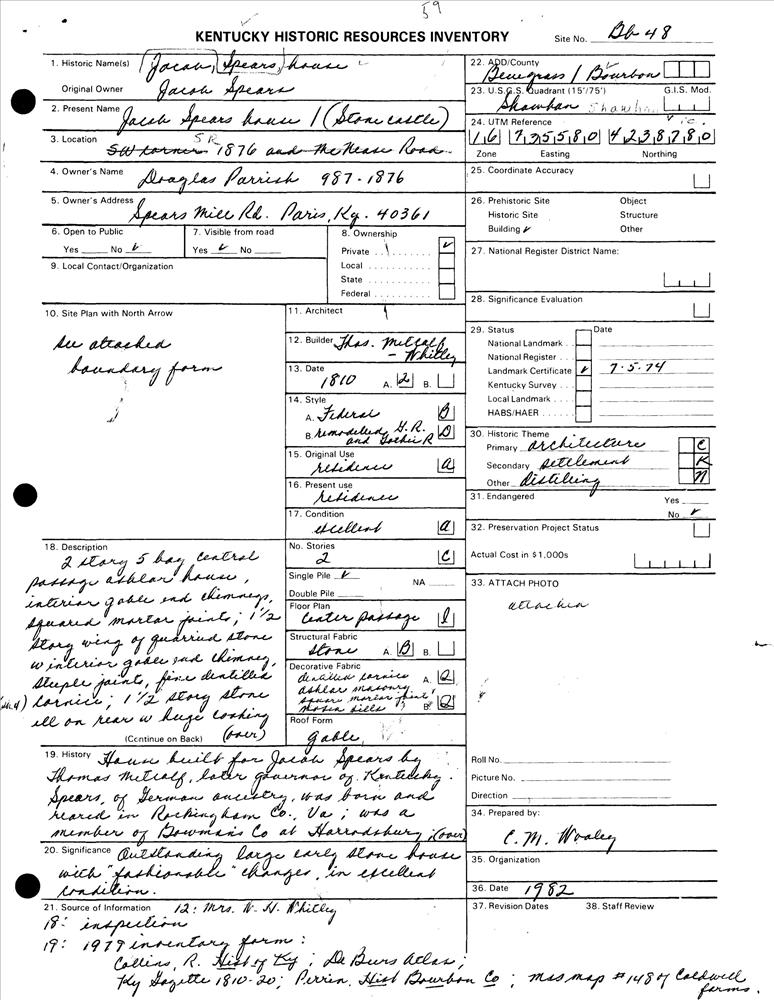 59
KENTUCKY HISTORIC RESOURCES INVENTORY
Site No. Bb 48
1. Historic Name(s) Jacob Spears house
Original Owner Jacob Spears
2. Present Name Jacob Spears house / (Stone castle)
3. Location SW corner SR 1876 and McKease Road
4. Owner's Name Douglas Parrish 987-1876
5. Owner's Address Spears Mill Rd. Paris, Ky. 40361
6. Open to Public
Yes No ✓
7. Visible from road
Yes ✓ No
8. Ownership
Private ✓
Local
State
Federal
9. Local Contact/Organization
10. Site Plan with North Arrow
see attached
boundary form
11. Architect
12. Builder Thos. Metcalf
- Whitley
13. Date
1810 A. 2 B.
14. Style
A. Federal B
B. remodeled G.R. D
and Gothic R
15. Original Use
residence a
16. Present use
residence
17. Condition
excellent a
18. Description
2 story 5 bay central
passage ashlar house,
interior gable end chimneys,
squared mortar joints; 1 1/2
story wing of quarried stone
w interior gable end chimney,
steeple joints, fine dentilled
cornice; 1 1/2 story stone
ell on rear w huge cooking
(Continue on Back) (over)
No. Stories
2 C
Single Pile ✓ NA
Double Pile
Floor Plan
center passage 1
Structural Fabric
stone A. B B.
Decorative Fabric
dentilled cornice A. 2
ashlar masonry
square mortar joint,
sills B. 2
Roof Form
gable
19. History House built for Jacob Spears by
Thomas Metcalf, later governor of Kentucky.
Spears, of German ancestry, was born and
reared in Rockingham Co., Va; was a
member of Bowman's Co at Harrodsburg; (over)
20. Significance Outstanding large early stone house
with "fashionable" changes, in excellent
condition.
21. Source of Information 12: Mrs. W. H. Whitley
18: inspection
19: 1979 inventory form:
Collins, R. Hist of Ky; De Beers Atlas;
Ky Gazette 1810-20; Perrin, Hist Bourbon Co; mss map #148 of Caldwell
farms.
22. ADD/County
Bluegrass / Bourbon
23. U.S.G.S. Quadrant (15'/75') G.I.S. Mod.
Shawhan Shawhan
24. UTM Reference
16 735580 4238780
Zone Easting Northing
25. Coordinate Accuracy
26. Prehistoric Site Object
Historic Site Structure
Building ✓ Other
27. National Register District Name:
28. Significance Evaluation
29. Status Date
National Landmark
National Register
Landmark Certificate ✓ 7-5-74
Kentucky Survey
Local Landmark
HABS/HAER
30. Historic Theme
Primary architecture C
Secondary settlement K
Other distilling N
31. Endangered Yes
No ✓
32. Preservation Project Status
Actual Cost in $1,000s
33. ATTACH PHOTO
attached
Roll No.
Picture No.
Direction
34. Prepared by:
C. M. Wooley
35. Organization
36. Date 1982
37. Revision Dates 38. Staff Review